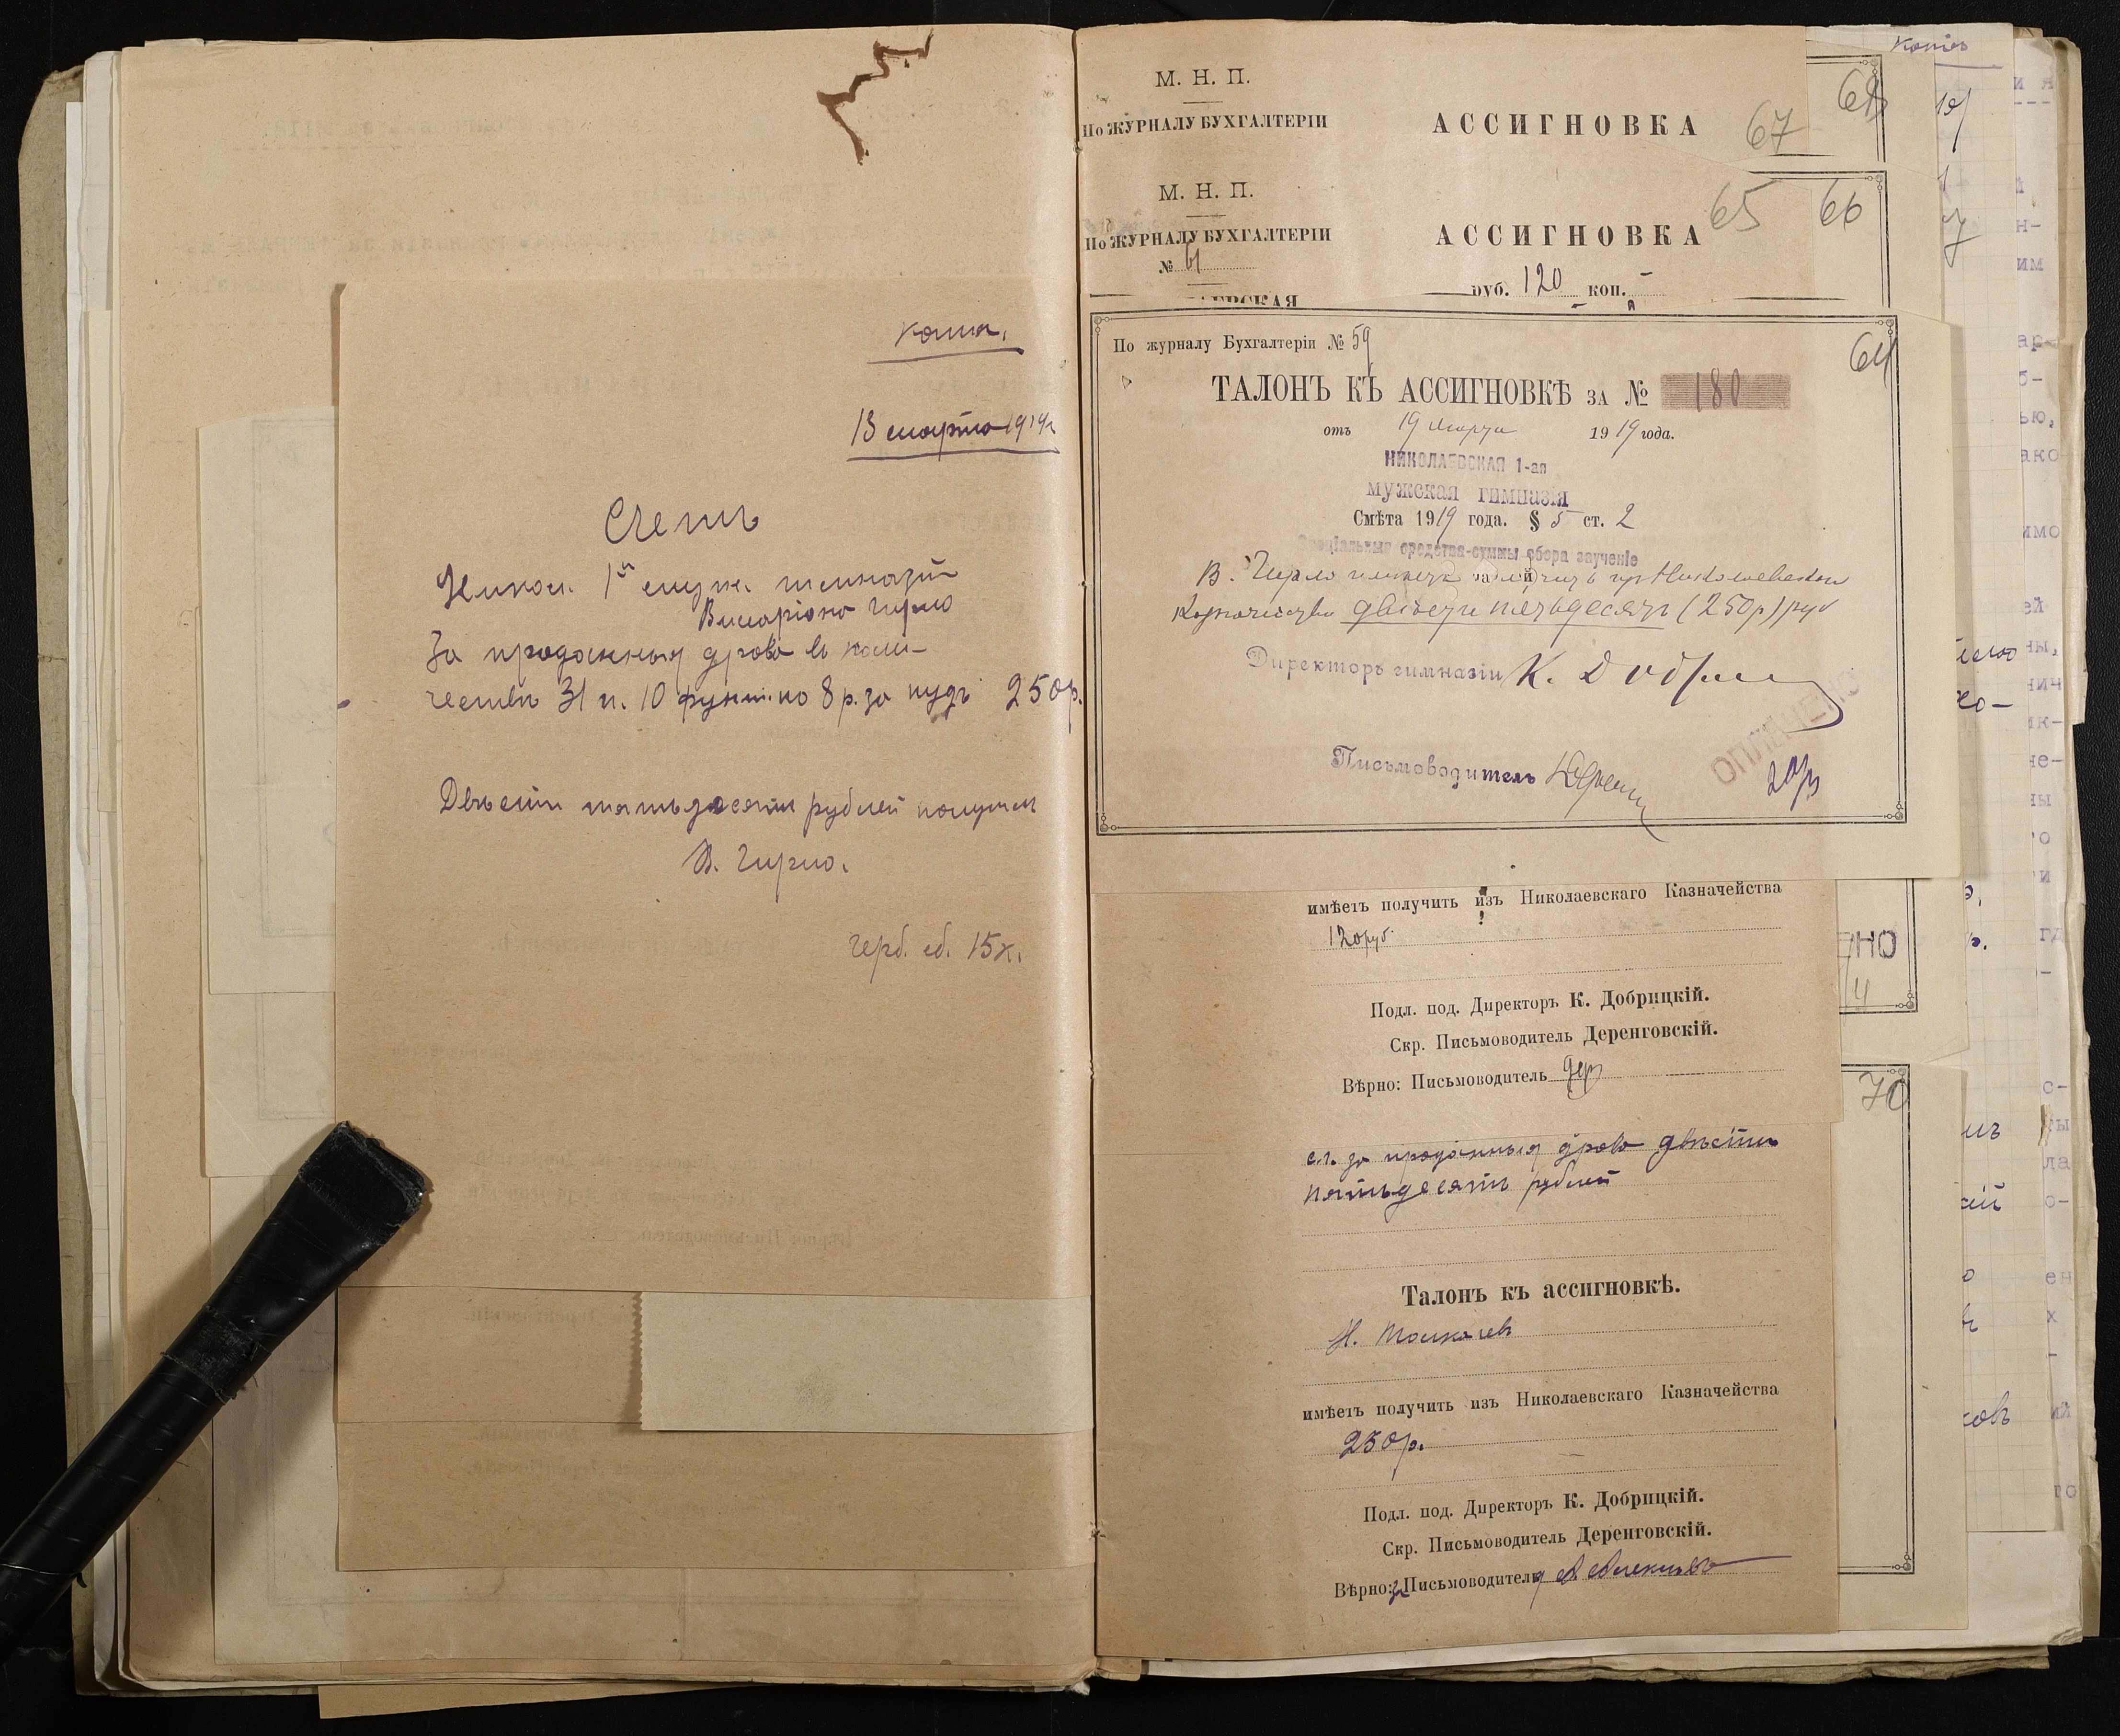 копія.
13 марта 1919 г.
Счетъ
Никол. 1й муж. гимназіи
Виссаріона Чирло
За проданныя дрова въ коли-
чествѣ 31 п. 10 фунт. по 8 р. за пудъ 250 р.
Двѣсти пятьдесятъ рублей получилъ
В. Чирло.
герб. сб. 15 к.
М. Н. П.
По ЖУРНАЛУ БУХГАЛТЕРІИ
АССИГНОВКА
67
68
М. Н. П.
По ЖУРНАЛУ БУХГАЛТЕРІИ
№ 61
АССИГНОВКА
65
66
руб. 120 коп. -
По журналу Бухгалтеріи № 59
64
ТАЛОНЪ КЪ АССИГНОВКѢ ЗА № 180
отъ 19 марта 1919 года.
НИКОЛАЕВСКАЯ 1-ая
мужская гимназія
Смѣта 1919 года. § 5 ст. 2
Спеціальныя средства-суммы сбора за ученіе
В. Чирло имѣетъ получить изъ Николаевскаго
Казначейства двѣсти пятьдесятъ (250 р) руб
Директоръ гимназіи К. Добр
ОПЛАЧЕНО
Письмоводитель
имѣетъ получить изъ Николаевскаго Казначейства
120 руб.
Подл. под. Директоръ К. Добрицкій.
Скр. Письмоводитель Деренговскій.
Вѣрно: Письмоводитель Дер
за проданныя дрова двѣсти
пятьдесятъ рублей
Талонъ къ ассигновкѣ.
Н. Толкачев
имѣетъ получить изъ Николаевскаго Казначейства
250 р.
Подл. под. Директоръ К. Добрицкій.
Скр. Письмоводитель Деренговскій.
Вѣрно: за Письмоводителя
копія
ЕНО
70